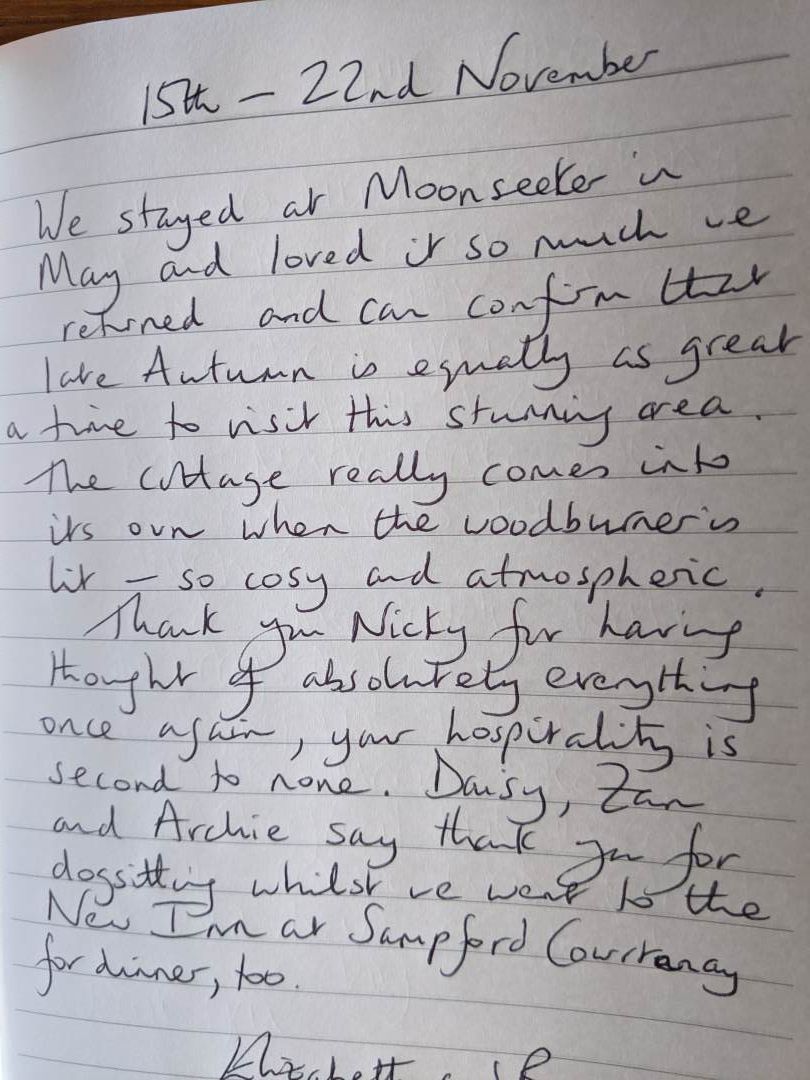 15th - 22nd November
We stayed at Moonseeker in
May and loved it so much we
returned and can confirm that
late Autumn is equally as great
a time to visit this stunning area.
The cottage really comes into
its own when the woodburner is
lit - so cosy and atmospheric.
Thank you Nicky for having
thought of absolutely everything
once again, your hospitality is
second to none. Daisy, Zan
and Archie say thank you for
dogsitting whilst we went to the
New Inn at Sampford Courtenay
for dinner, too.
Elizabeth